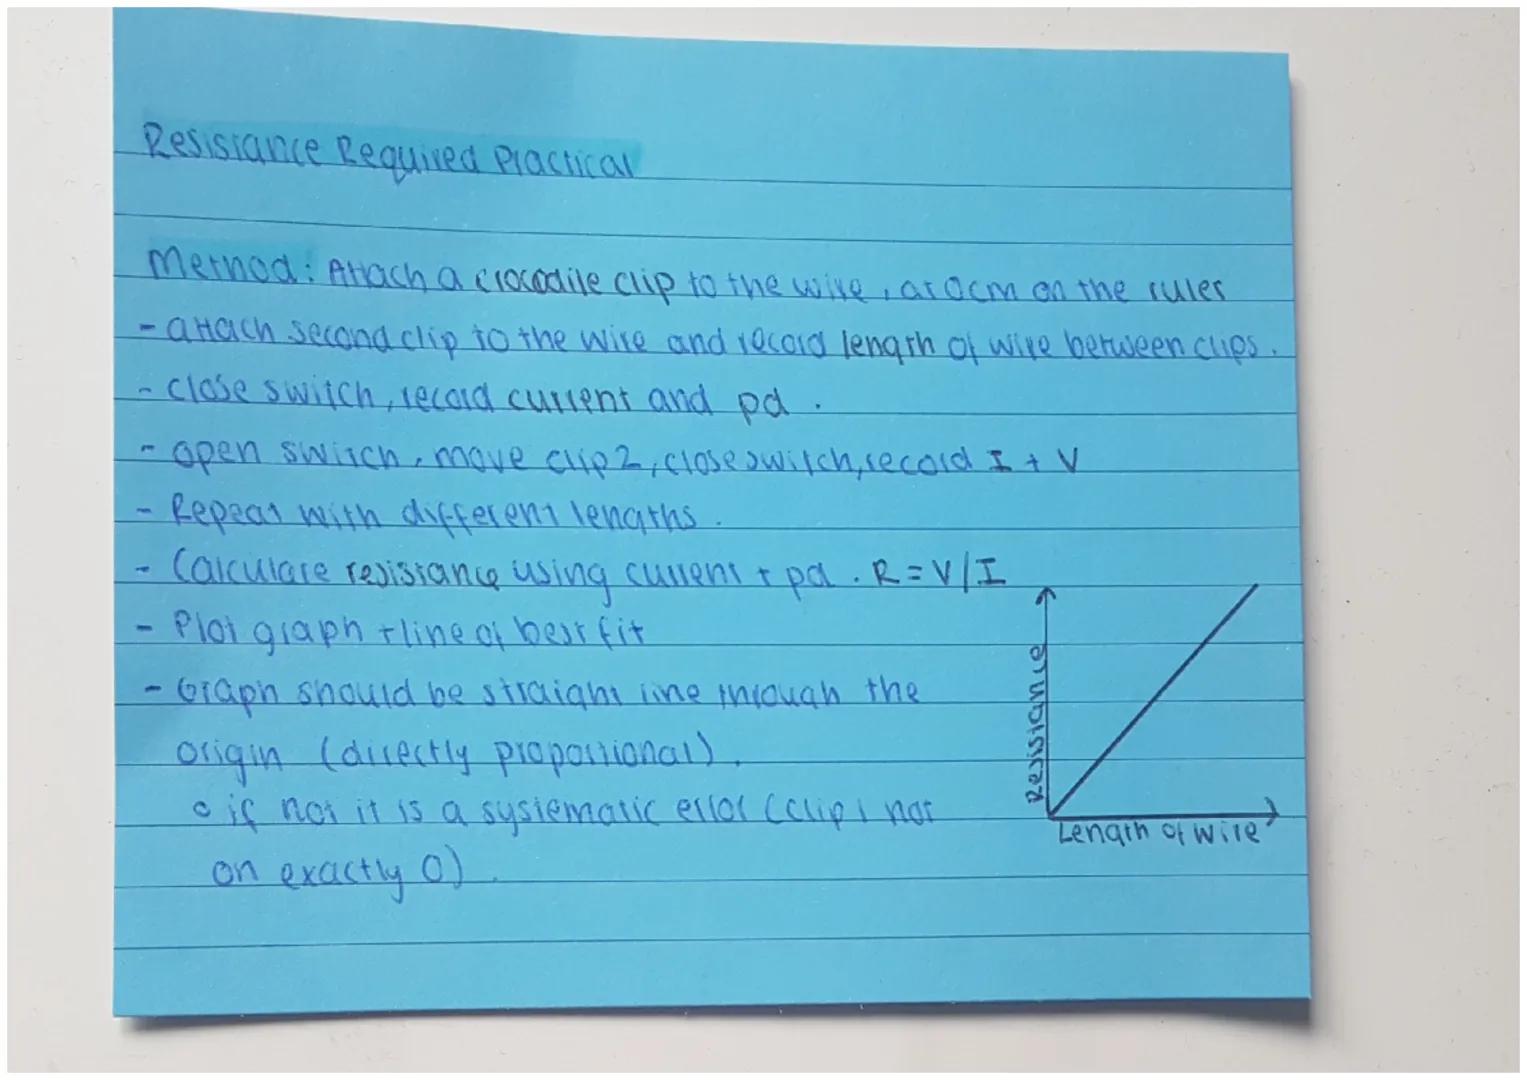 Resistance Required Practical
Method: Attach a crocodile clip to the wire, at 0cm on the ruler
- attach second clip to the wire and record length of wire between clips.
- close switch, record current and pd.
- open switch, move clip 2, close switch, record I + V
- Repeat with different lengths.
- Calculate resistance using current + pd. R = V/I
- Plot graph + line of best fit
- Graph should be straight line through the
origin (directly proportional).
o if not it is a systematic error (clip 1 not
on exactly 0).
Resistance
Length of wire